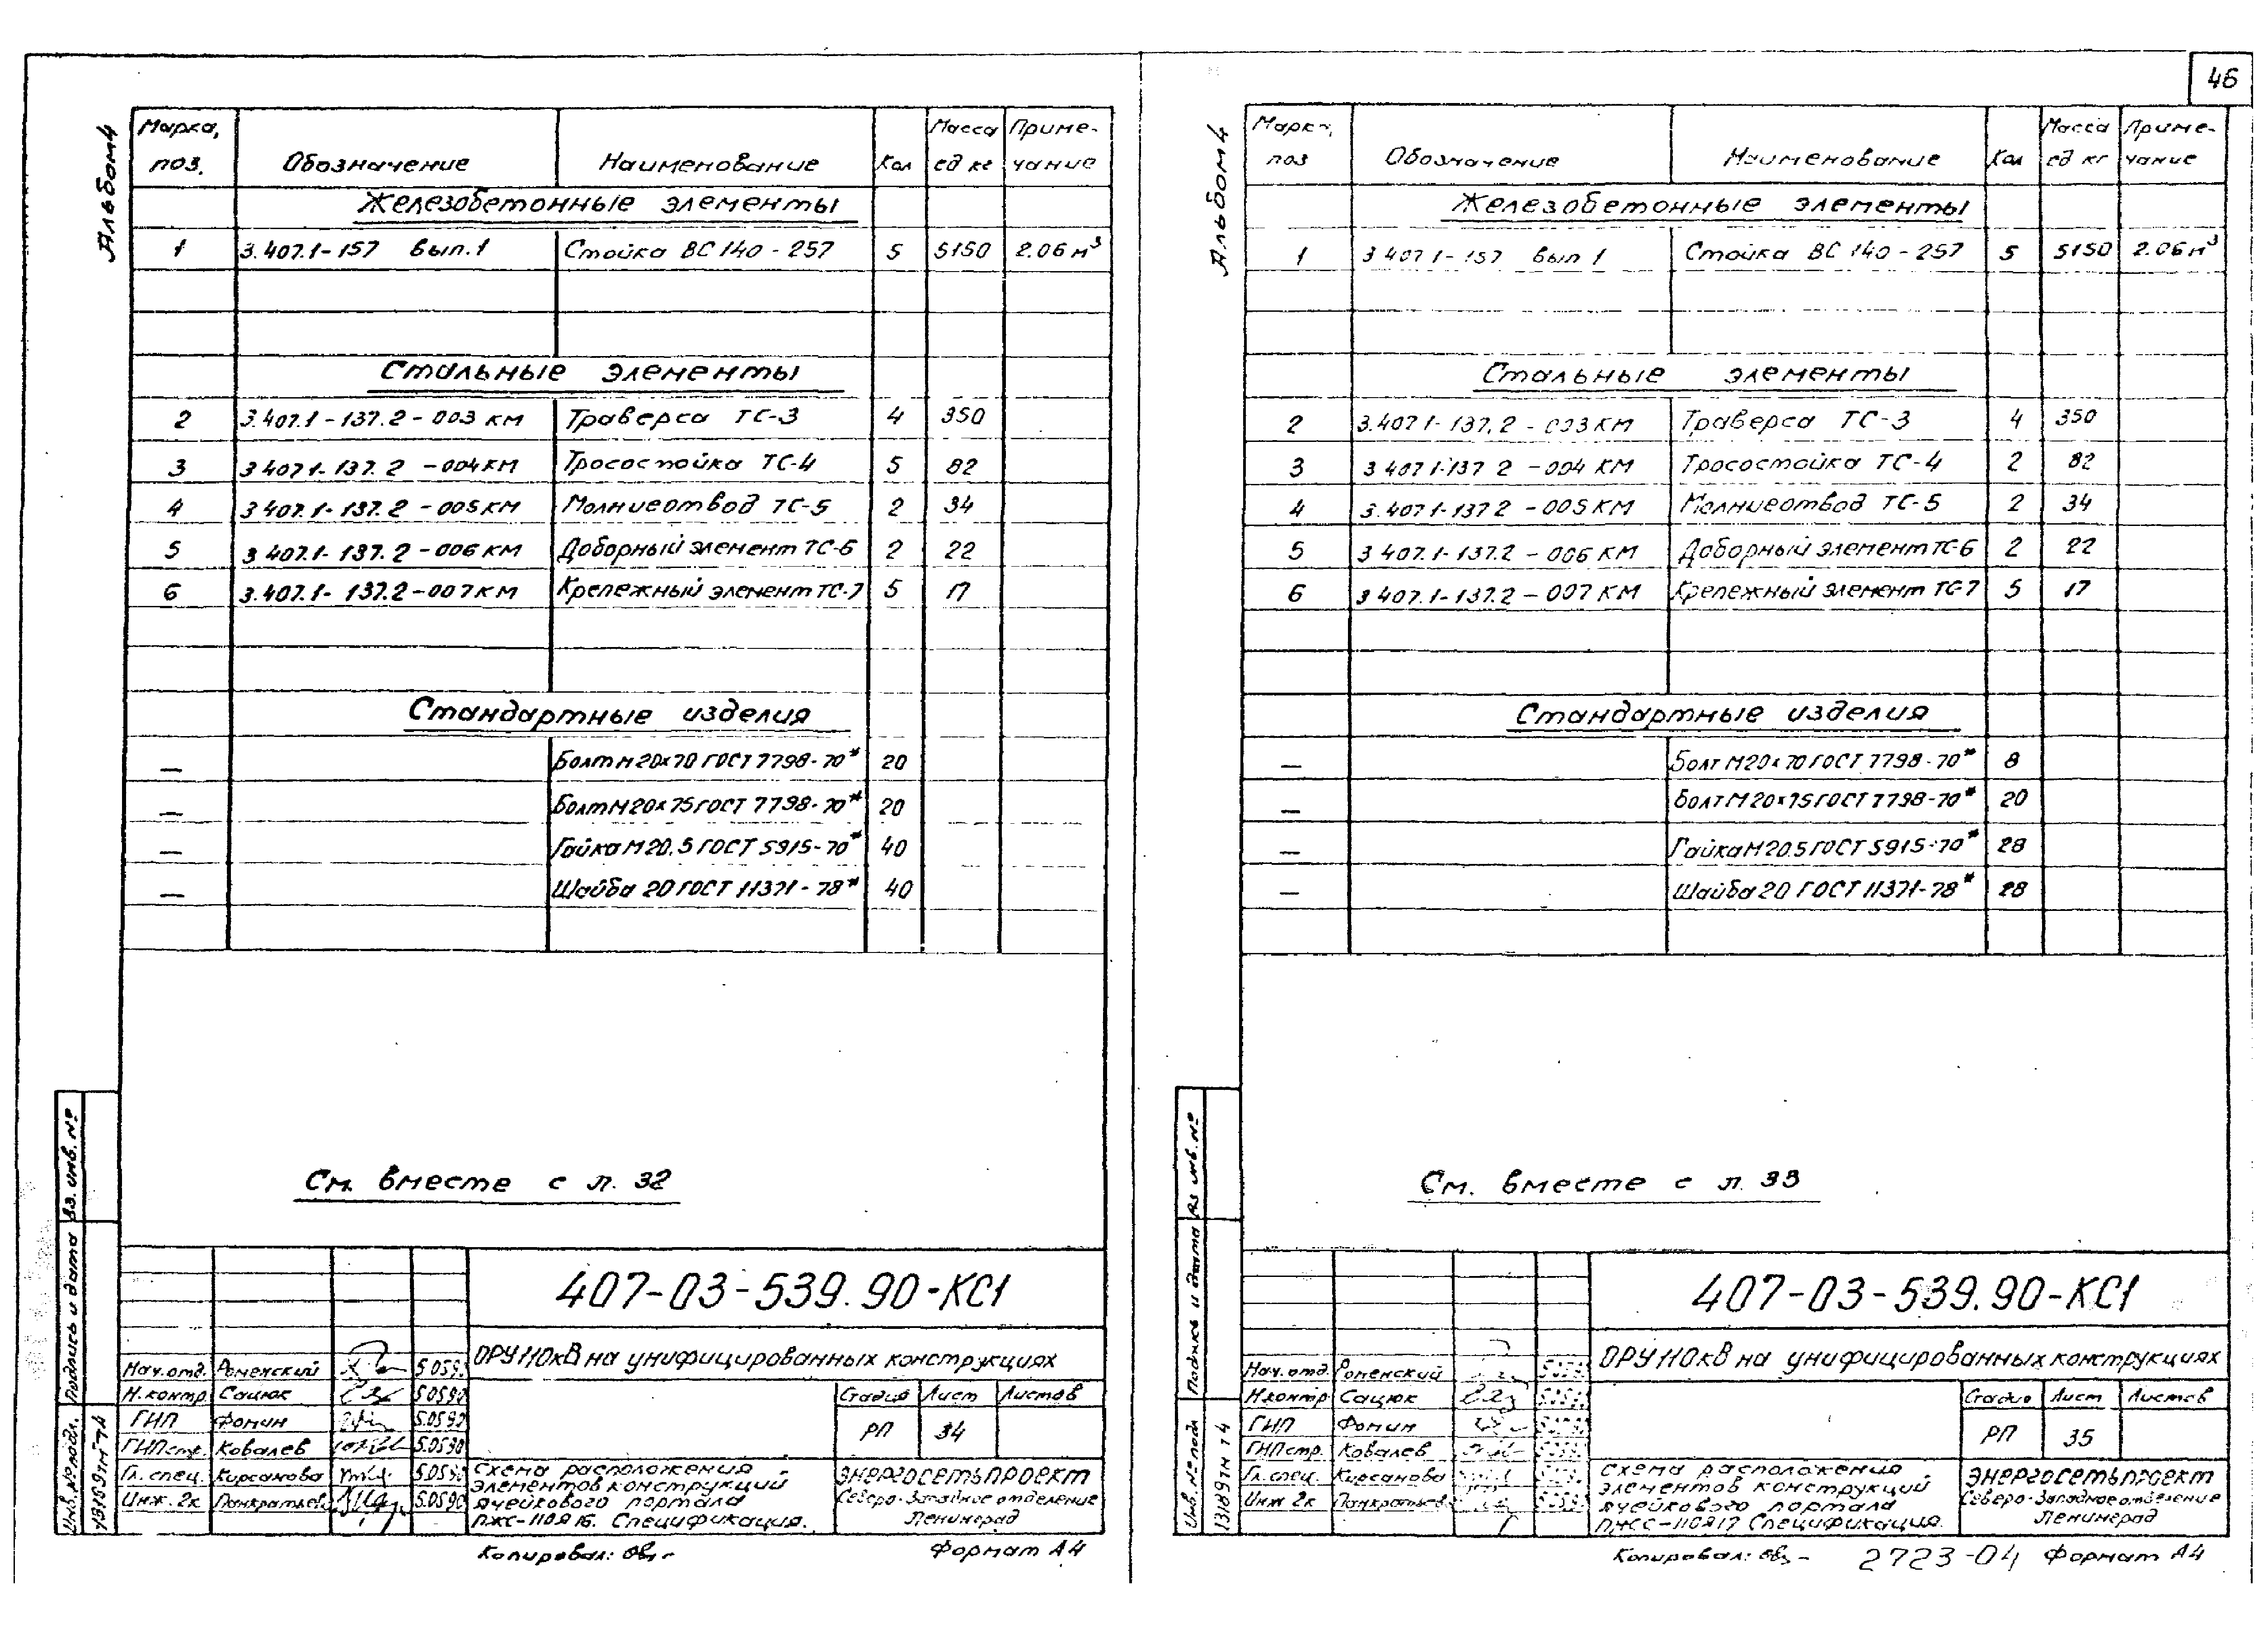 46
Альбом 4
Марка, поз. Обозначение Наименование Кол Масса ед кг Приме-чание
Железобетонные элементы
1 3.407.1-157 вып.1 Стойка ВС 140-257 5 5150 2.06 м³
Стальные элементы
2 3.407.1-137.2-003 КМ Траверса ТС-3 4 350
3 3.407.1-137.2-004 КМ Тросостойка ТС-4 5 82
4 3.407.1-137.2-005 КМ Молниеотвод ТС-5 2 34
5 3.407.1-137.2-006 КМ Доборный элемент ТС-6 2 22
6 3.407.1-137.2-007 КМ Крепежный элемент ТС-7 5 17
Стандартные изделия
— Болт М20х70 ГОСТ 7798-70* 20
— Болт М20х75 ГОСТ 7798-70* 20
— Гайка М20.5 ГОСТ 5915-70* 40
— Шайба 20 ГОСТ 11371-78* 40
См. вместе с л. 32
Инв.№ подл. Подпись и дата Вз. инв. №
13189тм-т4
407-03-539.90-КС1
ОРУ 110кВ на унифицированных конструкциях
Нач.отд. Роменский 5.05.90
Н.контр Сацюк 5.05.90
ГИП Фомин 5.05.90
ГИП стр. Ковалев 5.05.90
Гл. спец. Кирсанова 5.05.90
Инж. 2к Панкратьева 5.05.90
Стадия Лист Листов
РП 34
Схема расположения
элементов конструкций
ячейкового портала
ПЖС-110Я16. Спецификация.
Энергосетьпроект
Северо-Западное отделение
Ленинград
Копировал: Формат А4
Альбом 4
Марка, поз Обозначение Наименование Кол Масса ед кг Приме-чание
Железобетонные элементы
1 3.407.1-157 вып 1 Стойка ВС 140-257 5 5150 2.06 м³
Стальные элементы
2 3.407.1-137.2-003 КМ Траверса ТС-3 4 350
3 3.407.1-137.2-004 КМ Тросостойка ТС-4 2 82
4 3.407.1-137.2-005 КМ Молниеотвод ТС-5 2 34
5 3.407.1-137.2-006 КМ Доборный элемент ТС-6 2 22
6 3.407.1-137.2-007 КМ Крепежный элемент ТС-7 5 17
Стандартные изделия
— Болт М20х70 ГОСТ 7798-70* 8
— Болт М20х75 ГОСТ 7798-70* 20
— Гайка М20.5 ГОСТ 5915-70* 28
— Шайба 20 ГОСТ 11371-78* 28
См. вместе с л. 33
Инв. № подл Подпись и дата Вз инв. №
13189тм т4
407-03-539.90-КС1
ОРУ 110кВ на унифицированных конструкциях
Нач.отд. Роменский
Н.контр Сацюк
ГИП Фомин
ГИП стр. Ковалев
Гл. спец. Кирсанова
Инж 2к Панкратьева
Стадия Лист Листов
РП 35
Схема расположения
элементов конструкций
ячейкового портала
ПЖС-110Я17 Спецификация.
Энергосетьпроект
Северо-Западное отделение
Ленинград
Копировал: 2723-04 Формат А4